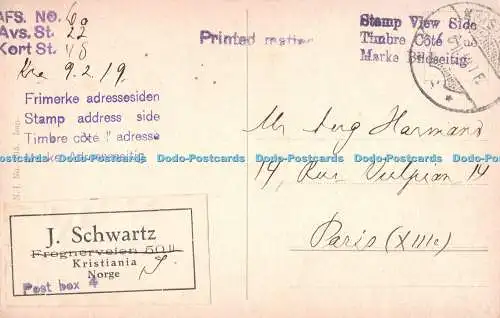 AFS. NO. 6a
Avs. St. 22
Kort St. 48
Kra 9.2.19.
Printed matter
Stamp View Side
Timbre Côté
Marke Bildseitig
Frimerke adressesiden
Stamp address side
Timbre côte l' adresse
Dodo-Postcards Dodo-Postcards Dodo-Postcards Dodo-Postcards Dodo-Postcards
Mr Aug Harmand
14, Rue Vulpian 14
Paris (XIIIe)
J. Schwartz
Frognerveien 50 II
Kristiania
Norge
Post box 4